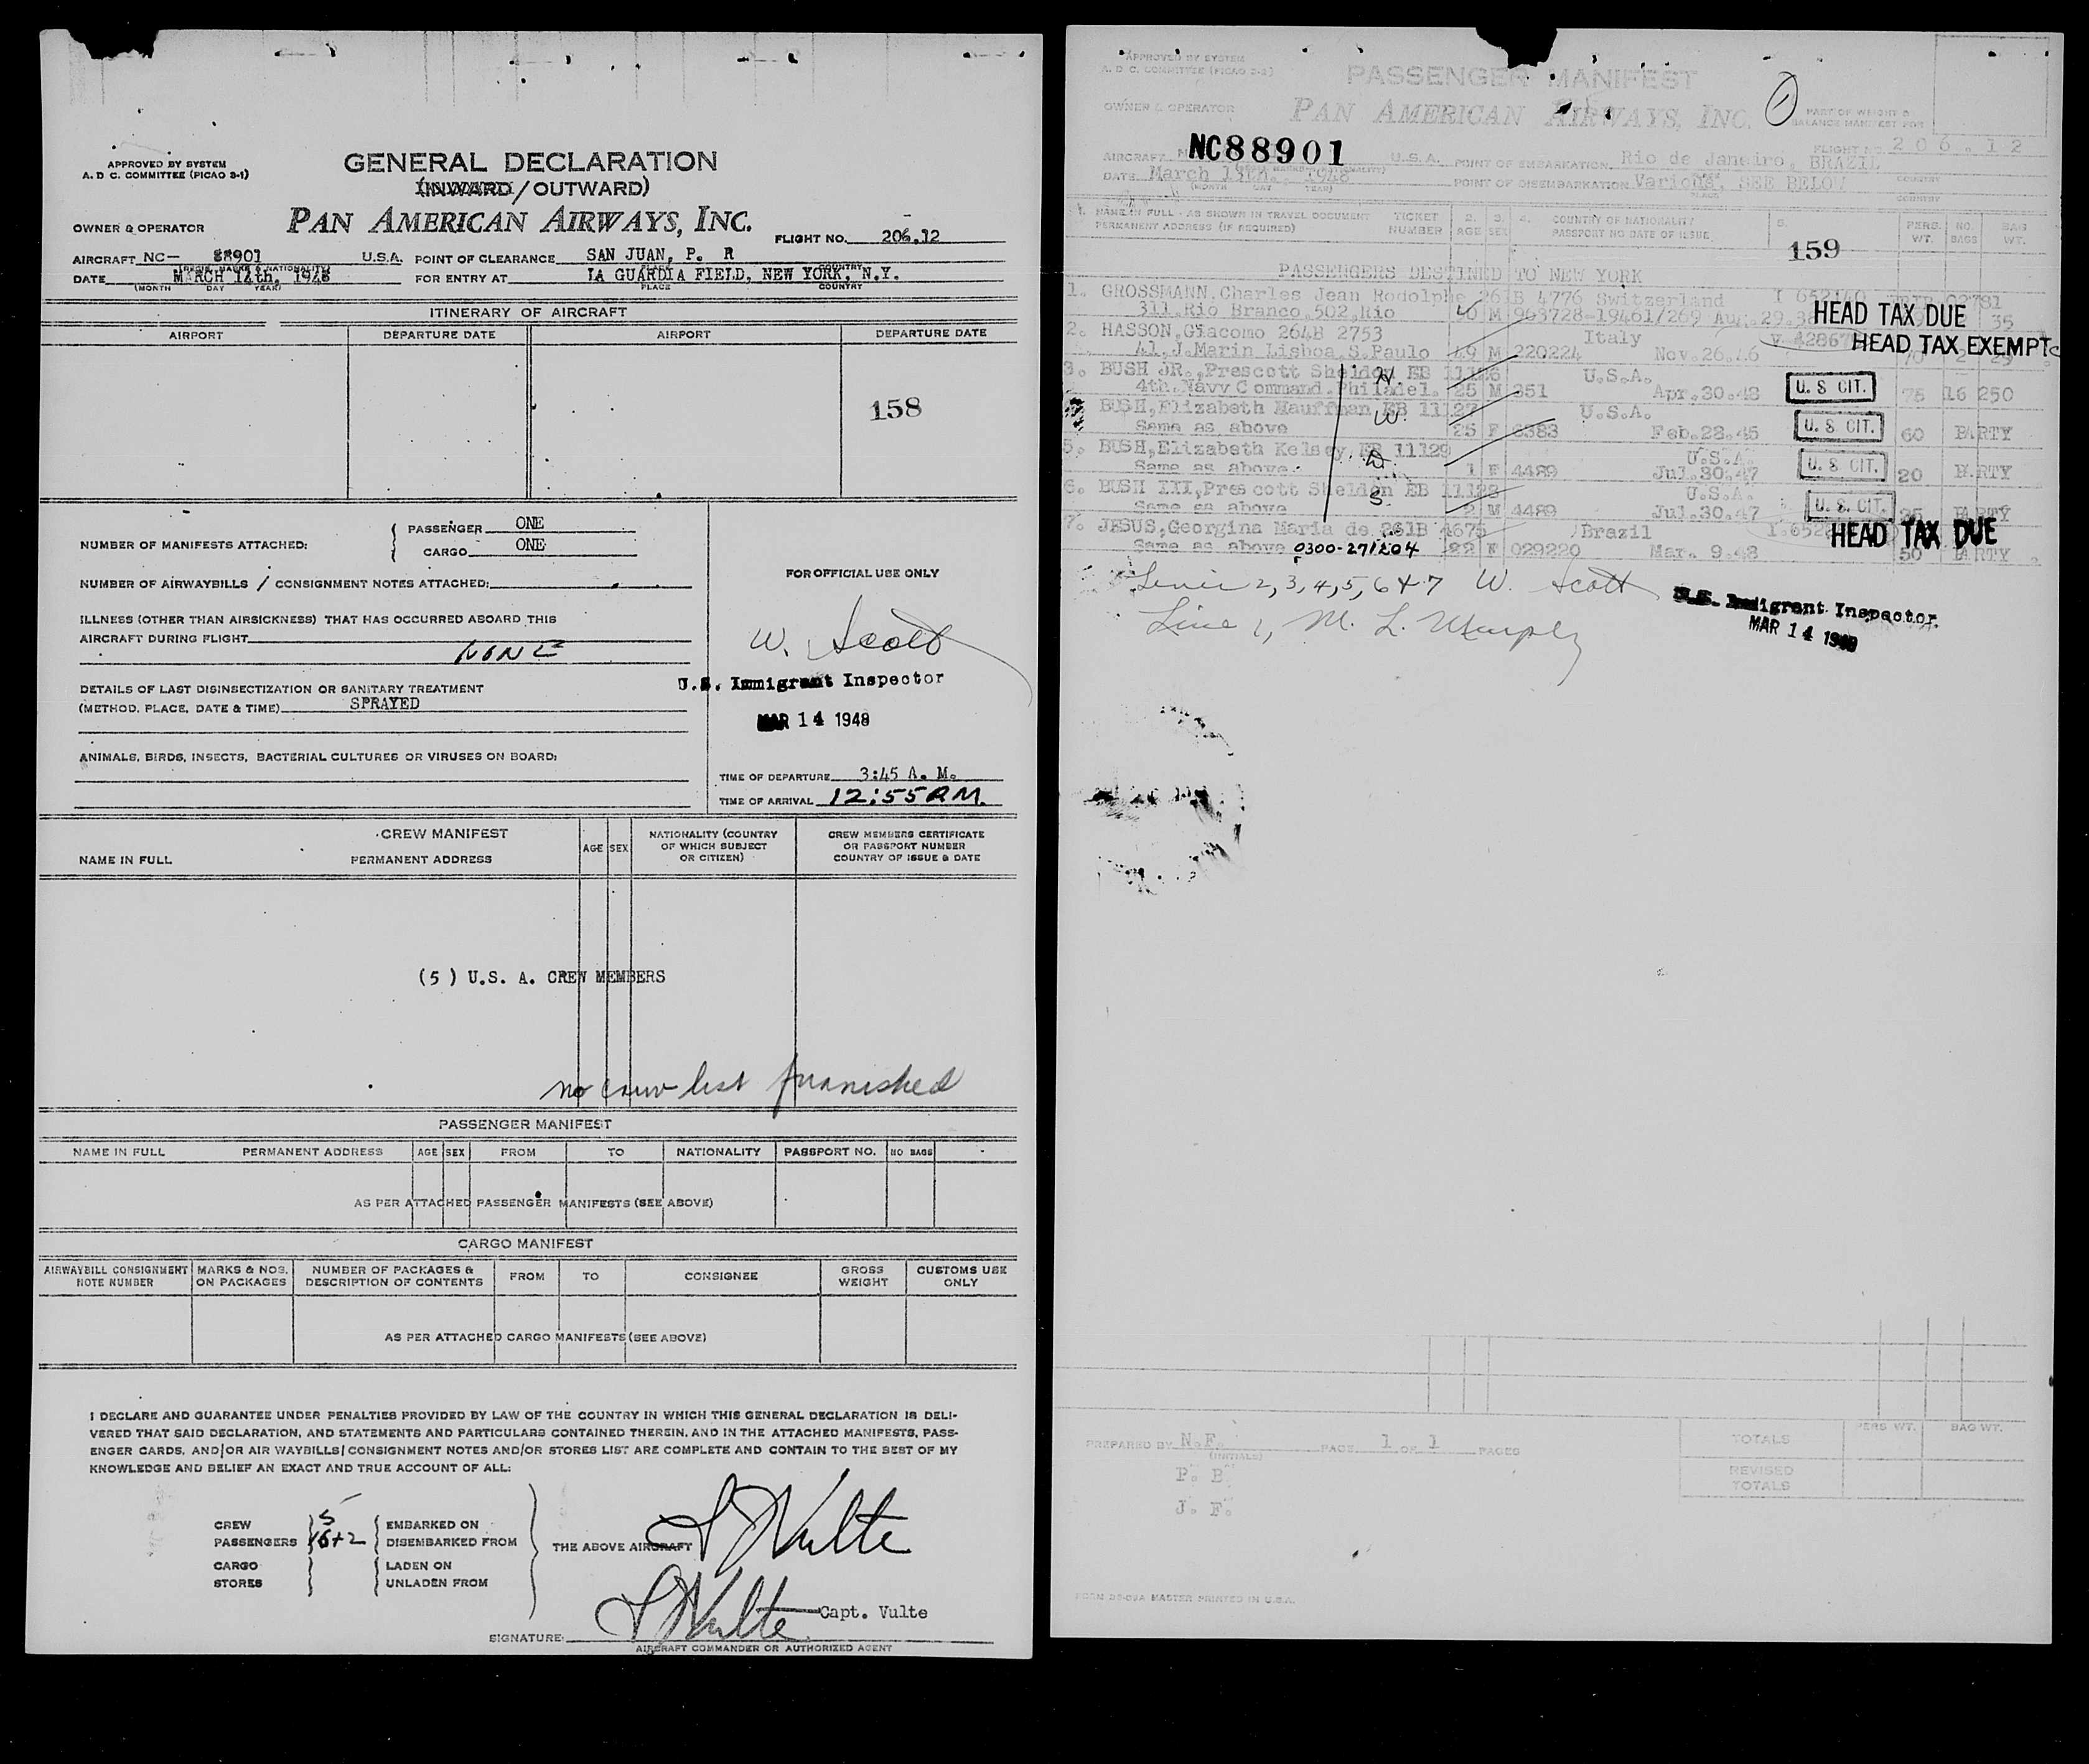 APPROVED BY SYSTEM
A. D. C. COMMITTEE (PICAO 3-1)
GENERAL DECLARATION
(INWARD/OUTWARD)
OWNER & OPERATOR
PAN AMERICAN AIRWAYS, INC.
FLIGHT NO. 206.12
AIRCRAFT NC- 88901 U.S.A. POINT OF CLEARANCE SAN JUAN, P. R
(REGIS. MARKS & NATIONALITY) PLACE COUNTRY
DATE MARCH 14th, 1948 FOR ENTRY AT LA GUARDIA FIELD, NEW YORK, N.Y.
(MONTH DAY YEAR) PLACE COUNTRY
ITINERARY OF AIRCRAFT
AIRPORT DEPARTURE DATE AIRPORT DEPARTURE DATE
158
NUMBER OF MANIFESTS ATTACHED: PASSENGER ONE
CARGO ONE
NUMBER OF AIRWAYBILLS / CONSIGNMENT NOTES ATTACHED:
ILLNESS (OTHER THAN AIRSICKNESS) THAT HAS OCCURRED ABOARD THIS
AIRCRAFT DURING FLIGHT
NONE
DETAILS OF LAST DISINSECTIZATION OR SANITARY TREATMENT
(METHOD, PLACE, DATE & TIME) SPRAYED
ANIMALS, BIRDS, INSECTS, BACTERIAL CULTURES OR VIRUSES ON BOARD:
FOR OFFICIAL USE ONLY
W. Scott
U.S. Immigrant Inspector
MAR 14 1948
TIME OF DEPARTURE 3:45 A. M.
TIME OF ARRIVAL 12:55 P.M.
CREW MANIFEST
NAME IN FULL PERMANENT ADDRESS
AGE SEX
NATIONALITY (COUNTRY
OF WHICH SUBJECT
OR CITIZEN)
CREW MEMBERS CERTIFICATE
OR PASSPORT NUMBER
COUNTRY OF ISSUE & DATE
(5 ) U.S. A. CREW MEMBERS
no crew list furnished
PASSENGER MANIFEST
NAME IN FULL PERMANENT ADDRESS AGE SEX FROM TO NATIONALITY PASSPORT NO. NO BAGS
AS PER ATTACHED PASSENGER MANIFESTS (SEE ABOVE)
CARGO MANIFEST
AIRWAYBILL CONSIGNMENT
NOTE NUMBER
MARKS & NOS.
ON PACKAGES
NUMBER OF PACKAGES &
DESCRIPTION OF CONTENTS
FROM TO CONSIGNEE
GROSS
WEIGHT
CUSTOMS USE
ONLY
AS PER ATTACHED CARGO MANIFESTS (SEE ABOVE)
I DECLARE AND GUARANTEE UNDER PENALTIES PROVIDED BY LAW OF THE COUNTRY IN WHICH THIS GENERAL DECLARATION IS DELI-
VERED THAT SAID DECLARATION, AND STATEMENTS AND PARTICULARS CONTAINED THEREIN, AND IN THE ATTACHED MANIFESTS, PASS-
ENGER CARDS, AND/OR AIR WAYBILLS/CONSIGNMENT NOTES AND/OR STORES LIST ARE COMPLETE AND CONTAIN TO THE BEST OF MY
KNOWLEDGE AND BELIEF AN EXACT AND TRUE ACCOUNT OF ALL:
CREW 5 EMBARKED ON
PASSENGERS 16+2 DISEMBARKED FROM
THE ABOVE AIRCRAFT
CARGO LADEN ON
STORES UNLADEN FROM
Vulte
Vulte
Capt. Vulte
SIGNATURE:
AIRCRAFT COMMANDER OR AUTHORIZED AGENT
APPROVED BY SYSTEM
A. D. C. COMMITTEE (PICAO 3-2)
PASSENGER MANIFEST
OWNER & OPERATOR
PAN AMERICAN AIRWAYS, INC.
1
PART OF WEIGHT &
BALANCE MANIFEST FOR
FLIGHT NO. 206.12
AIRCRAFT NC88901 U.S.A. POINT OF EMBARKATION Rio de Janeiro, BRAZIL
DATE March 13th, 1948 POINT OF DISEMBARKATION Various, SEE BELOW
(MONTH DAY YEAR) PLACE COUNTRY
1. NAME IN FULL - AS SHOWN IN TRAVEL DOCUMENT
PERMANENT ADDRESS (IF REQUIRED)
TICKET
NUMBER
2. AGE
3. SEX
4. COUNTRY OF NATIONALITY
PASSPORT NO DATE OF ISSUE
5.
PERS. WT.
NO. BAGS
BAG WT.
159
PASSENGERS DESTINED TO NEW YORK
1. GROSSMANN,Charles Jean Rodolphe 261B 4776 Switzerland
311,Rio Branco,502,Rio M 903728-19461/269 Aug.29.38 35
HEAD TAX DUE
2. HASSON,Giacomo 264B 2753 Italy
41,J.Marin Lisboa,S.Paulo 49 M 220224 Nov.26.46
HEAD TAX EXEMPT
3. BUSH JR.,Prescott Sheldon EB 11126 U.S.A.
4th.Navy Command.Philadel. 25 M 351 Apr.30.48 U. S CIT. 75 16 250
BUSH,Elizabeth Kauffman EB 11127 U.S.A.
Same as above 25 F 6383 Feb.28.45 U. S CIT. 60 PARTY
5. BUSH,Elizabeth Kelsey EB 11129 U.S.A.
Same as above. 1 F 4489 Jul.30.47 U. S CIT. 20 PARTY
6. BUSH III,Prescott Sheldon EB 11128 U.S.A.
Same as above 2 M 4489 Jul.30.47 U. S. CIT. PARTY
7. JESUS,Georgina Maria de 261B 4675 Brazil
Same as above 0300-271204 22 F 029220 Mar. 9.48 50 PARTY
HEAD TAX DUE
H.
W.
D.
S.
Lines 2,3,4,5,6+7 W. Scott
Line 1, M. L. Murphy
U.S. Immigrant Inspector.
MAR 14 1948
PREPARED BY N.F. PAGE 1 OF 1 PAGES
(INITIALS)
P. B.
J. F.
PERS WT. BAG WT.
TOTALS
REVISED
TOTALS
MASTER PRINTED IN U.S.A.